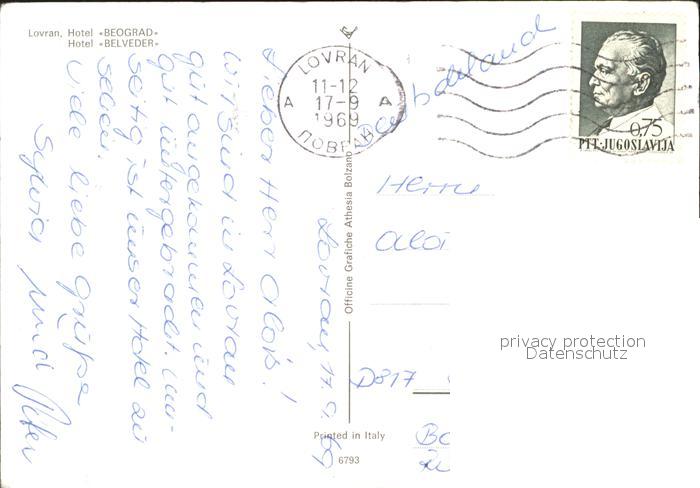 Lovran, Hotel «BEOGRAD»
Hotel «BELVEDER»
Lovran, 17.9.69
Lieber Herr Alois!
Wir sind in Lovran
gut angekommen und
gut untergebracht. Um-
seitig ist unser Hotel zu
sehen.
Viele liebe Grüße
Sylvia und Peter
LOVRAN
11-12
A 17-9 A
1969
ЛОВРАН
0,75
PTT-JUGOSLAVIJA
Deutschland
Herrn
Aloi
D817
Officine Grafiche Athesia Bolzano
Printed in Italy
6793
privacy protection
Datenschutz